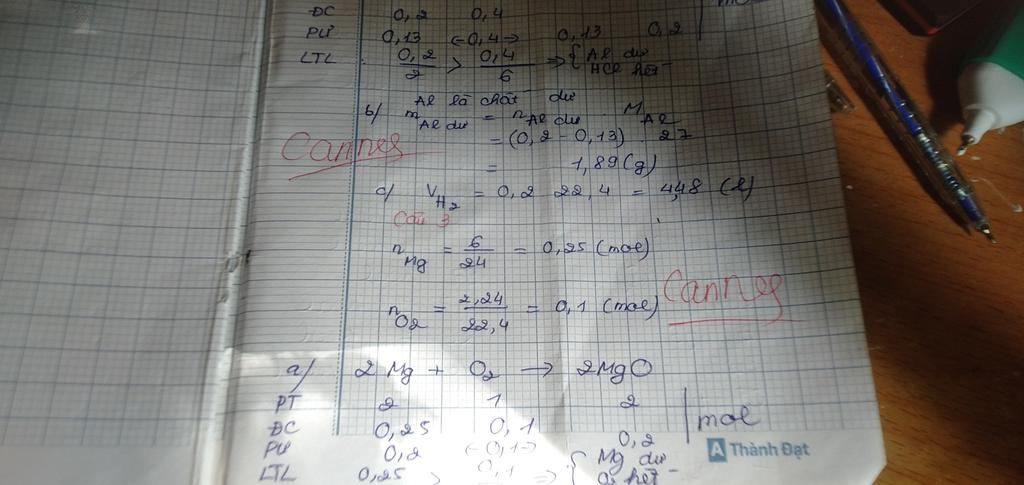 ĐC 0,2 0,4 mol
PƯ 0,13 <-0,4-> 0,13 0,2
LTL 0,2/2 > 0,4/6 => { Al dư
HCl hết
Al là chất dư
b/ m Al dư = n Al dư . M Al
= (0,2 - 0,13) 27
= 1,89 (g)
Cannes
c/ V H2 = 0,2 22,4 = 4,48 (l)
Câu 3
n Mg = 6/24 = 0,25 (mol)
n O2 = 2,24/22,4 = 0,1 (mol)
Cannes
a/ 2Mg + O2 -> 2MgO
PT 2 1 2
ĐC 0,25 0,1 mol
PƯ 0,2 <-0,1-> 0,2
LTL 0,25 > 0,1 => { Mg dư
O2 hết
A Thành Đạt